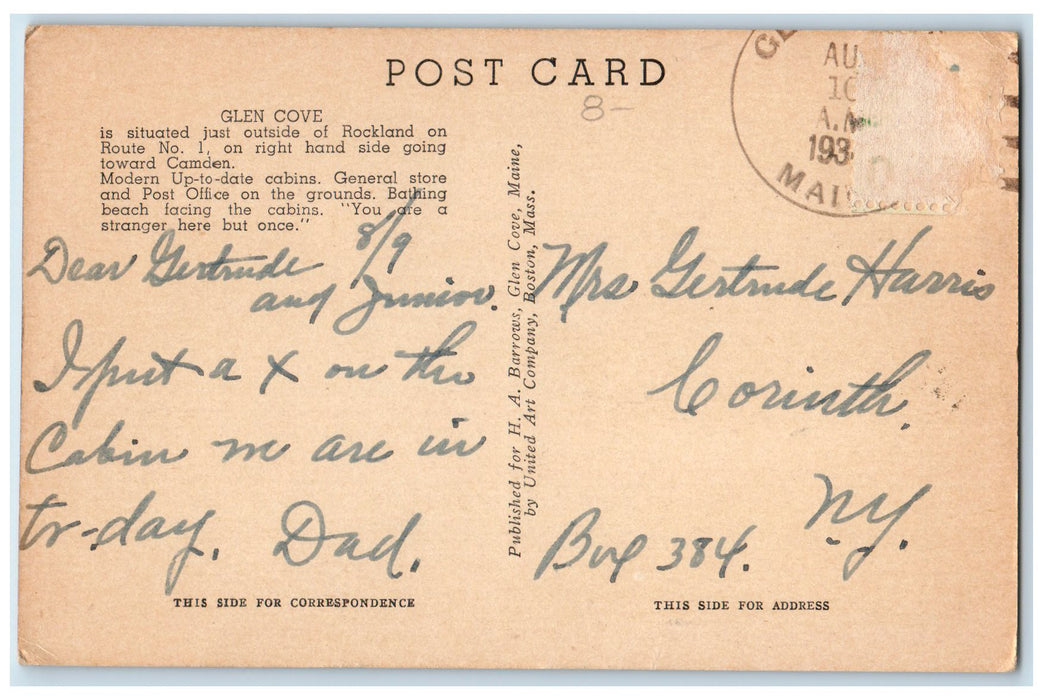 POST CARD
8-
GLEN COVE
is situated just outside of Rockland on
Route No. 1, on right hand side going
toward Camden.
Modern Up-to-date cabins. General store
and Post Office on the grounds. Bathing
beach facing the cabins. "You are a
stranger here but once."
8/9
Dear Gertrude
and Junior.
I put a X on the
Cabin we are in
to-day.
Dad.
THIS SIDE FOR CORRESPONDENCE
Published for H. A. Barrows, Glen Cove, Maine,
by United Art Company, Boston, Mass.
AU
10
A.M
193
MAI
Mrs Gertrude Harris
Corinth.
N.Y.
Box 384.
THIS SIDE FOR ADDRESS